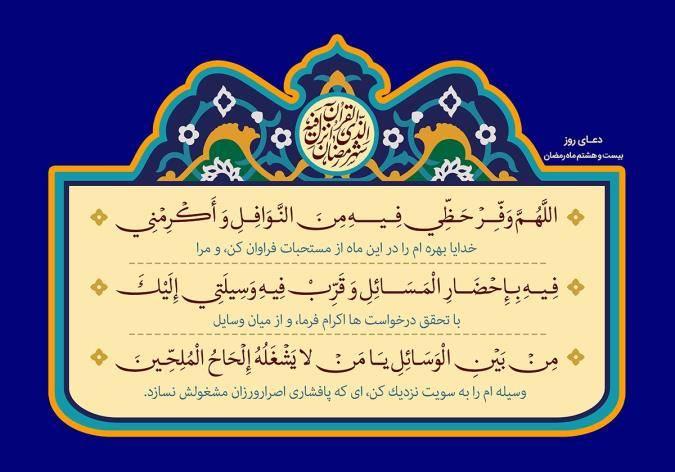 دعـای روز
بیست و هشتم ماه رمضان
شهر رمضان الذی انزل فیه القرآن
اللَّهُمَّ وَفِّرْ حَظِّي فِيهِ مِنَ النَّوَافِلِ وَ أَكْرِمْنِي
خدایا بهره ام را در این ماه از مستحبات فراوان کن، و مرا
فِيهِ بِإِحْضَارِ الْمَسَائِلِ وَ قَرِّبْ فِيهِ وَسِيلَتِي إِلَيْكَ
با تحقق درخواست ها اکرام فرما، و از میان وسایل
مِنْ بَيْنِ الْوَسَائِلِ يَا مَنْ لا يَشْغَلُهُ إِلْحَاحُ الْمُلِحِّينَ
وسیله ام را به سویت نزدیك کن، ای که پافشاری اصرارورزان مشغولش نسازد.